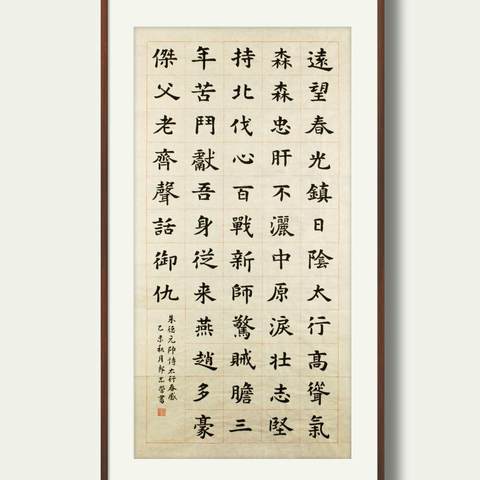 遠望春光鎮日陰太行高聳氣
森森忠肝不灑中原淚壯志堅
持北伐心百戰新師驚賊膽三
年苦鬥獻吾身従来燕趙多豪
傑父老齊聲話御仇
朱德元帥詩太行春感
乙未秋月書